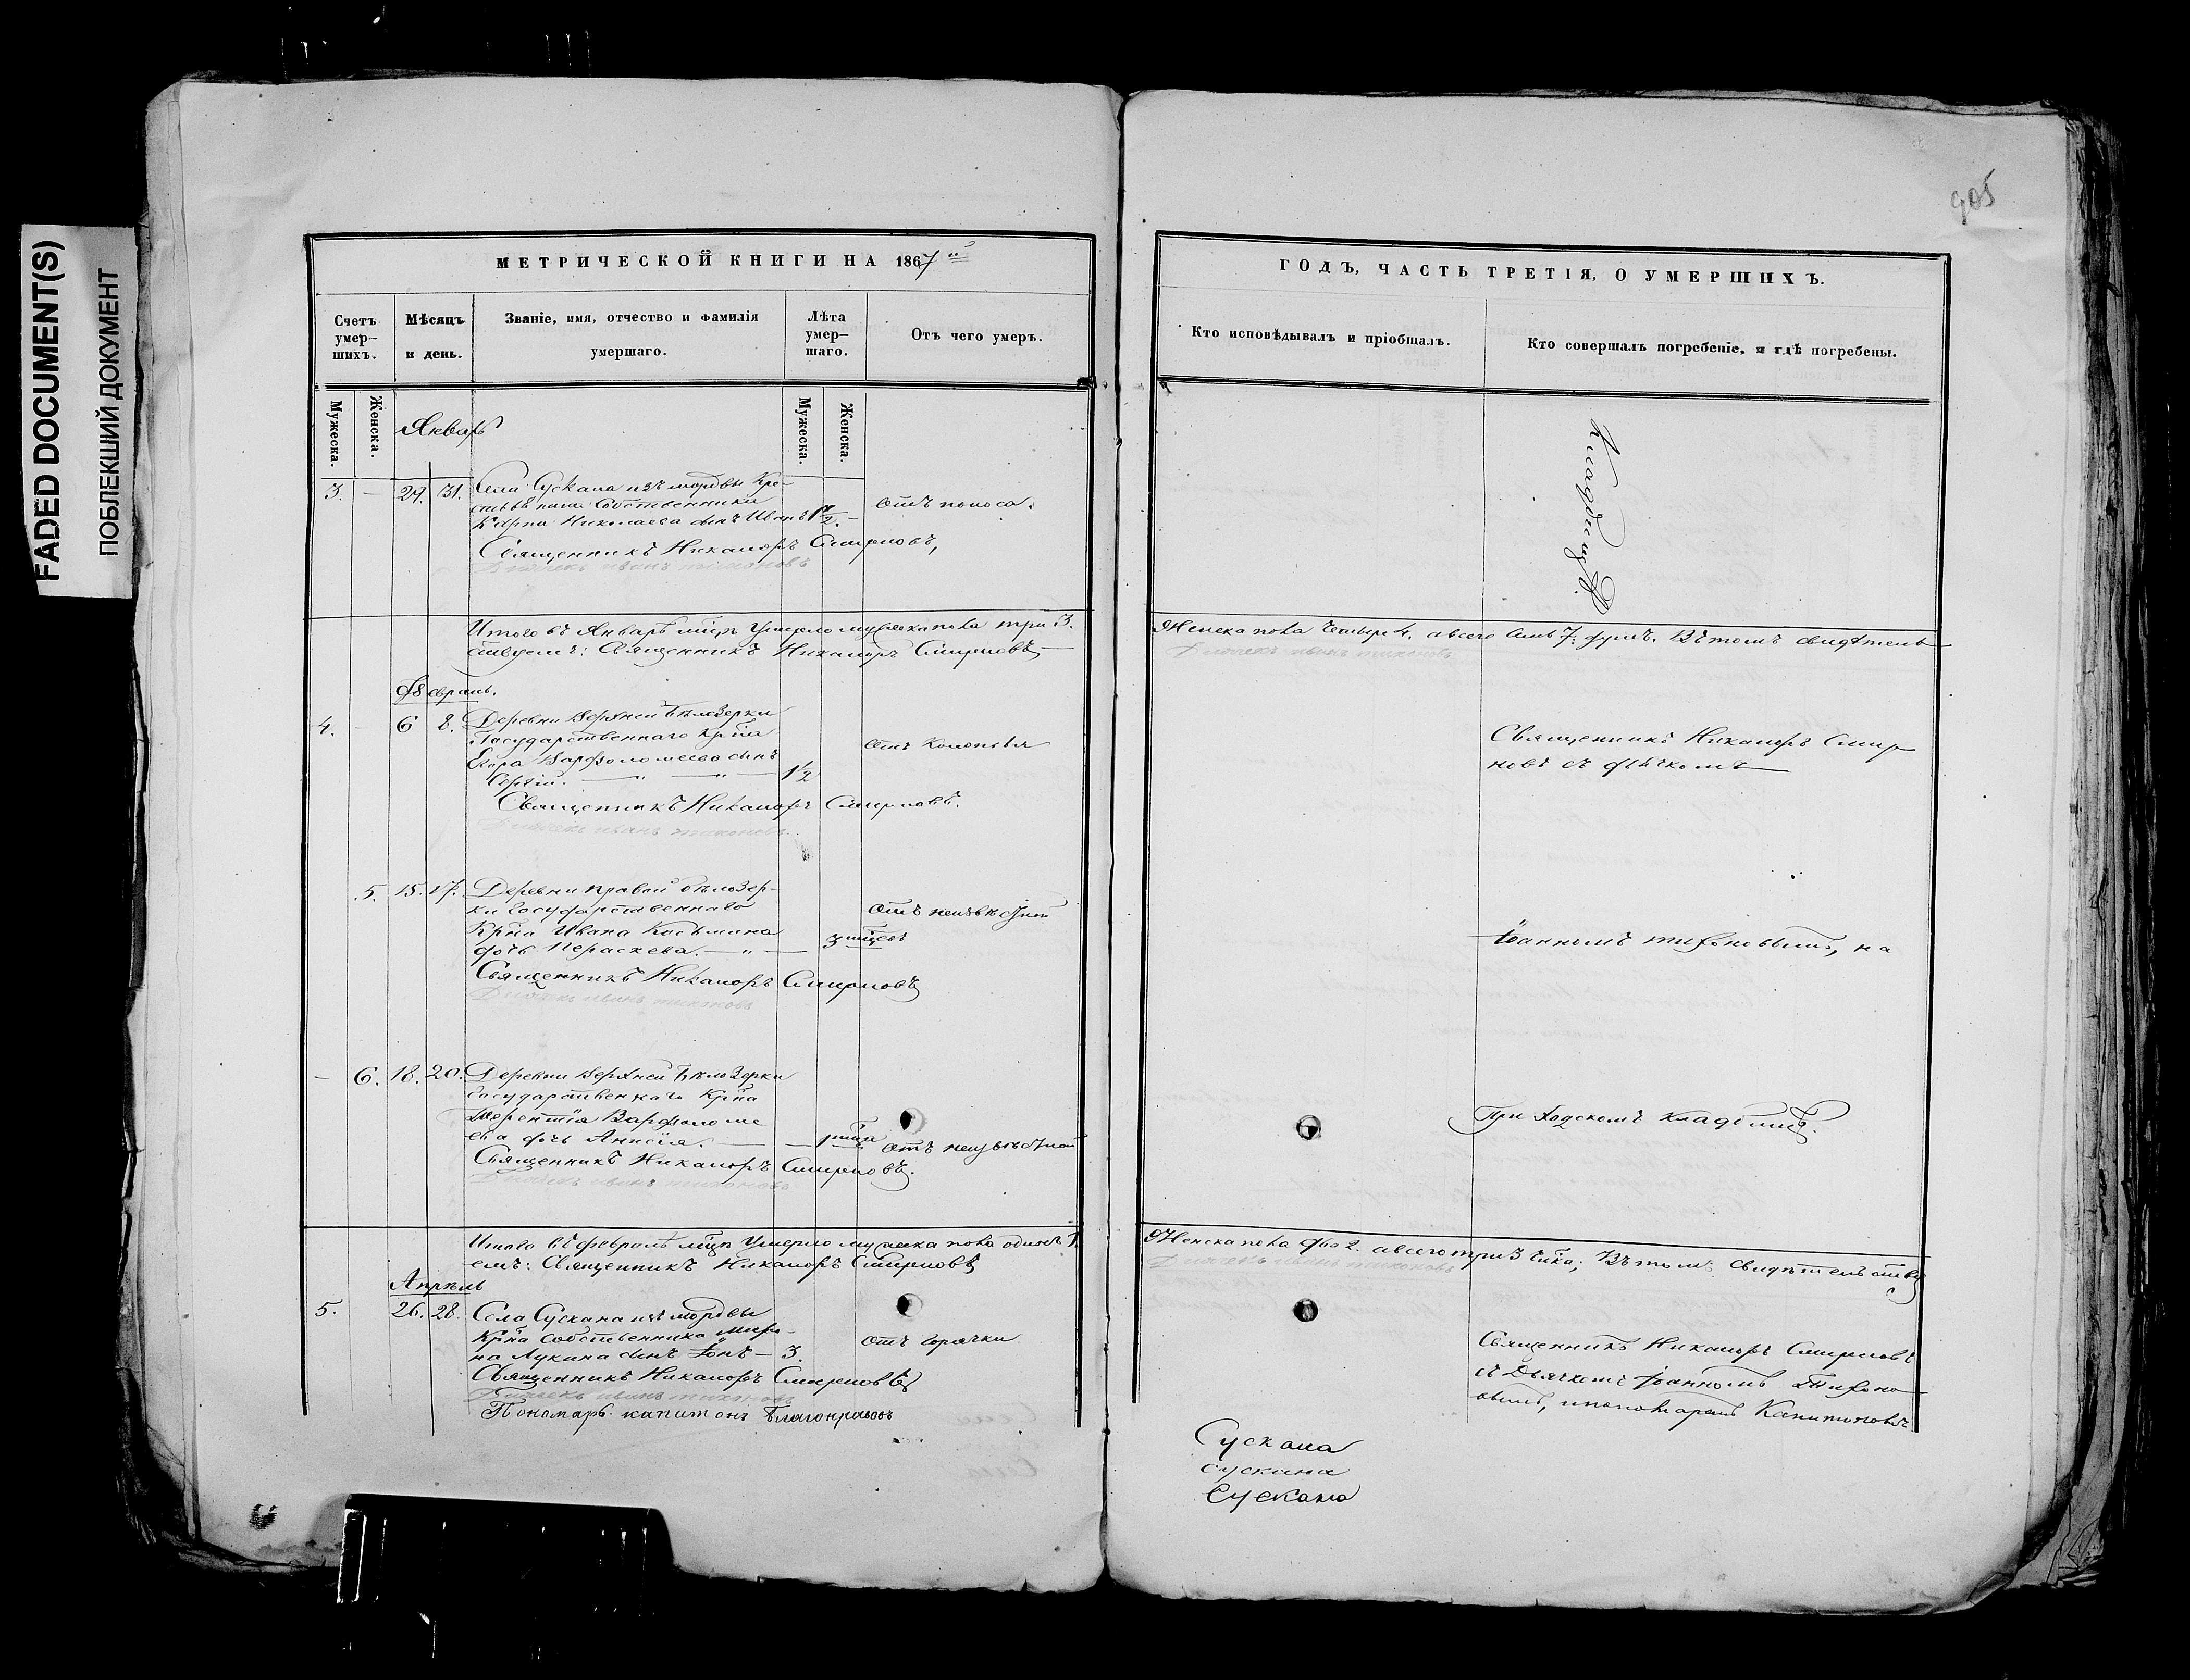 FADED DOCUMENT(S)
ПОБЛЕКШИЙ ДОКУМЕНТ
905
МЕТРИЧЕСКОЙ КНИГИ НА 1867й
Счетъ умер-шихъ.
Мѣсяцъ и день.
Званіе, имя, отчество и фамилія умершаго.
Лѣта умер-шаго.
Отъ чего умеръ.
Мужеска.
Женска.
Январь
Мужеска.
Женска.
3. — 29. 31. Села Сускана изъ мордвы Кре-
стьянина Собственника
Карпа Николаева сынъ Иванъ 1 1/2. —
отъ поноса.
Священникъ Никаноръ Смирновъ,
Дьячекъ иванъ тихоновъ
Итого въ Январѣ мцѣ Умерло мужеска пола три 3.
ствуемъ: Священникъ Никаноръ Смирновъ
Февраль.
4. — 6 8. Деревни Верхней Бѣлозерки
Государственнаго Крнна
Егора Варфоломеева сынъ
Сергій. — " — " — 1 1/2
отъ
Священникъ Никаноръ Смирновъ.
Дьячекъ иванъ тихоновъ.
5. 15. 17. Деревни правой бѣлозер-
ки Государственнаго
Крнна Ивана Косьмина
дочь Пераскева. — " —
3 мцсв
отъ неизвѣстной
Священникъ Никаноръ Смирновъ
Дьячекъ иванъ тихоновъ
— 6. 18. 20. Деревни Верхней Бѣлозерки
Государственнаго Крнна
Терентія Варфоломе
ева дочь Анисія. — —
1 мца отъ неизвѣстной
Священникъ Никаноръ Смирновъ.
Дьячекъ иванъ тихоновъ
Итого въ февралѣ мцѣ Умерло мужеска пола одинъ 1.
емъ: Священникъ Никаноръ Смирновъ
Апрѣль
5. 26. 28. Села Сускана изъ мордвы
Крнна собственника Миро-
на Лукина сынъ Іонъ — 3.
отъ горячки
Священникъ Никаноръ Смирновъ
Дьячекъ иванъ тихоновъ
Пономарь капитонъ Благонравовъ
ГОДЪ, ЧАСТЬ ТРЕТІЯ, О УМЕРШИХЪ.
Кто исповѣдывалъ и пріобщалъ.
Кто совершалъ погребеніе, и гдѣ погребены.
Кладбищѣ.
Женска пола четыре 4. а всего семь 7. душъ. Въ томъ свидѣтель
Дьячекъ иванъ тихоновъ
Священникъ Никаноръ Смир
новъ съ дьячкомъ
Іоанномъ тихоновымъ, на
При ходскомъ кладбищѣ.
Женска пола два 2. а всего три 3 чѣка; Въ томъ свидѣтельству
Дьячекъ иванъ тихоновъ
Священникъ Никаноръ Смирновъ
съ Дьячкомъ Іоанномъ Тихоно
вымъ, и пономаремъ Капитономъ
Сускана
сускана
Сускана